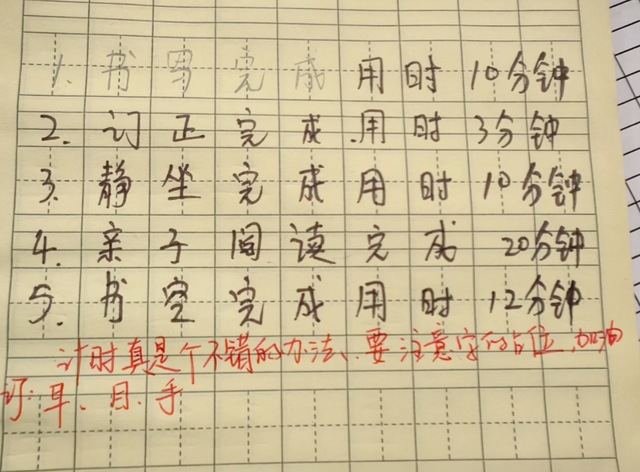 1. 书写完成 用时 10分钟
2. 订正完成.用时 3分钟
3. 静坐完成用时 10分钟
4. 亲子阅读完成 20分钟
5. 书空完成用时 12分钟
计时真是个不错的办法、要注意字的占位,加油
订:早、目、手